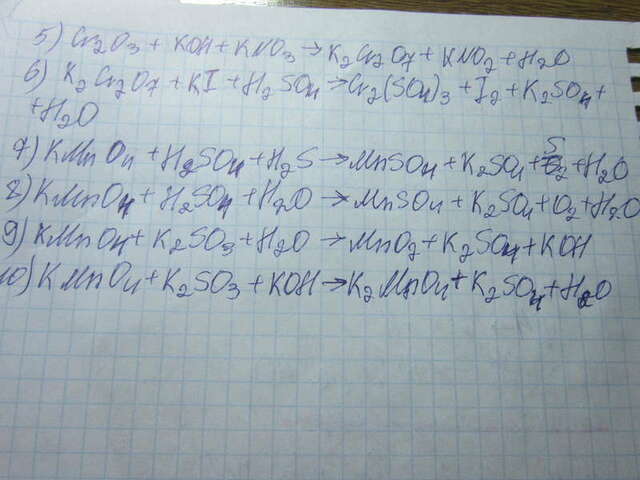 5) Cr2O3 + KOH + KNO3 → K2Cr2O7 + KNO2 + H2O
6) K2Cr2O7 + KI + H2SO4 → Cr2(SO4)3 + I2 + K2SO4 +
+ H2O
7) KMnO4 + H2SO4 + H2S → MnSO4 + K2SO4 + S + H2O
8) KMnO4 + H2SO4 + H2O → MnSO4 + K2SO4 + O2 + H2O
9) KMnO4 + K2SO3 + H2O → MnO2 + K2SO4 + KOH
10) KMnO4 + K2SO3 + KOH → K2MnO4 + K2SO4 + H2O